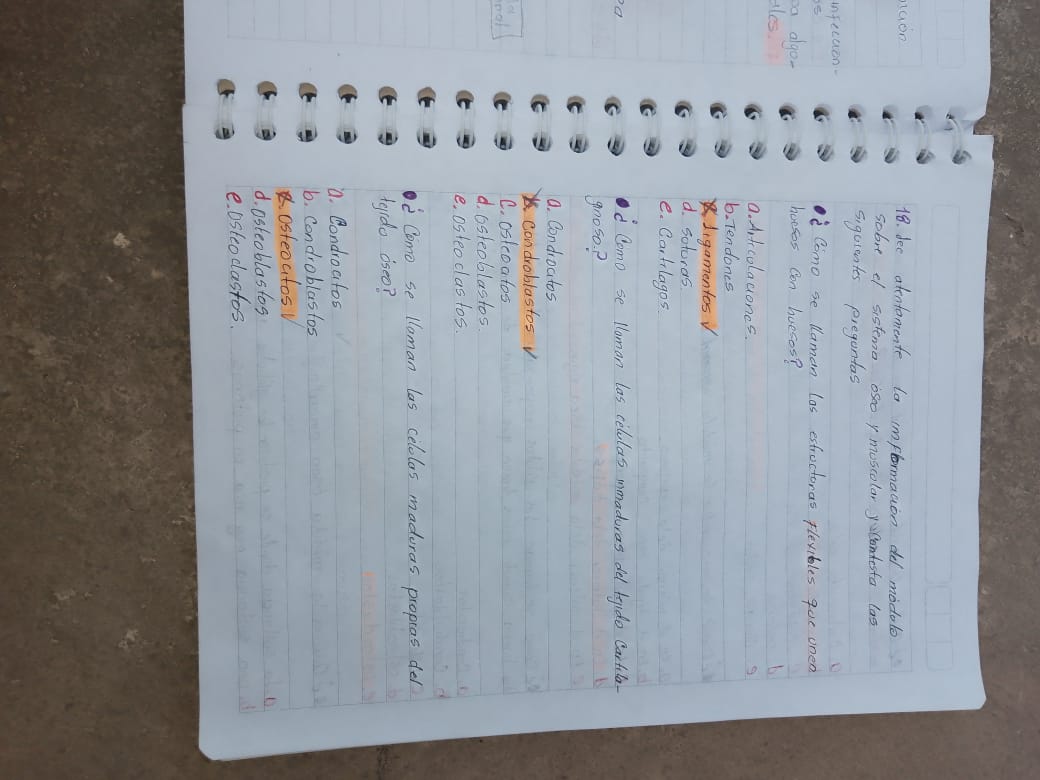 18. Lee atentamente la información del módulo
sobre el sistema óseo y muscular y contesta las
siguientes preguntas
¿Cómo se llaman las estructuras flexibles que unen
huesos con huesos?
a. Articulaciones.
b. Tendones
c. Ligamentos ✓
d. Suturas.
e. Cartílagos.
¿Cómo se llaman las células inmaduras del tejido Cartila-
ginoso?
a. Condrocitos
b. Condroblastos ✓
c. Osteocitos
d. Osteoblastos.
e. Osteoclastos.
¿Cómo se llaman las células maduras propias del
tejido óseo?
a. Condrocitos
b. Condroblastos
c. Osteocitos ✓
d. Osteoblastos
e. Osteoclastos.